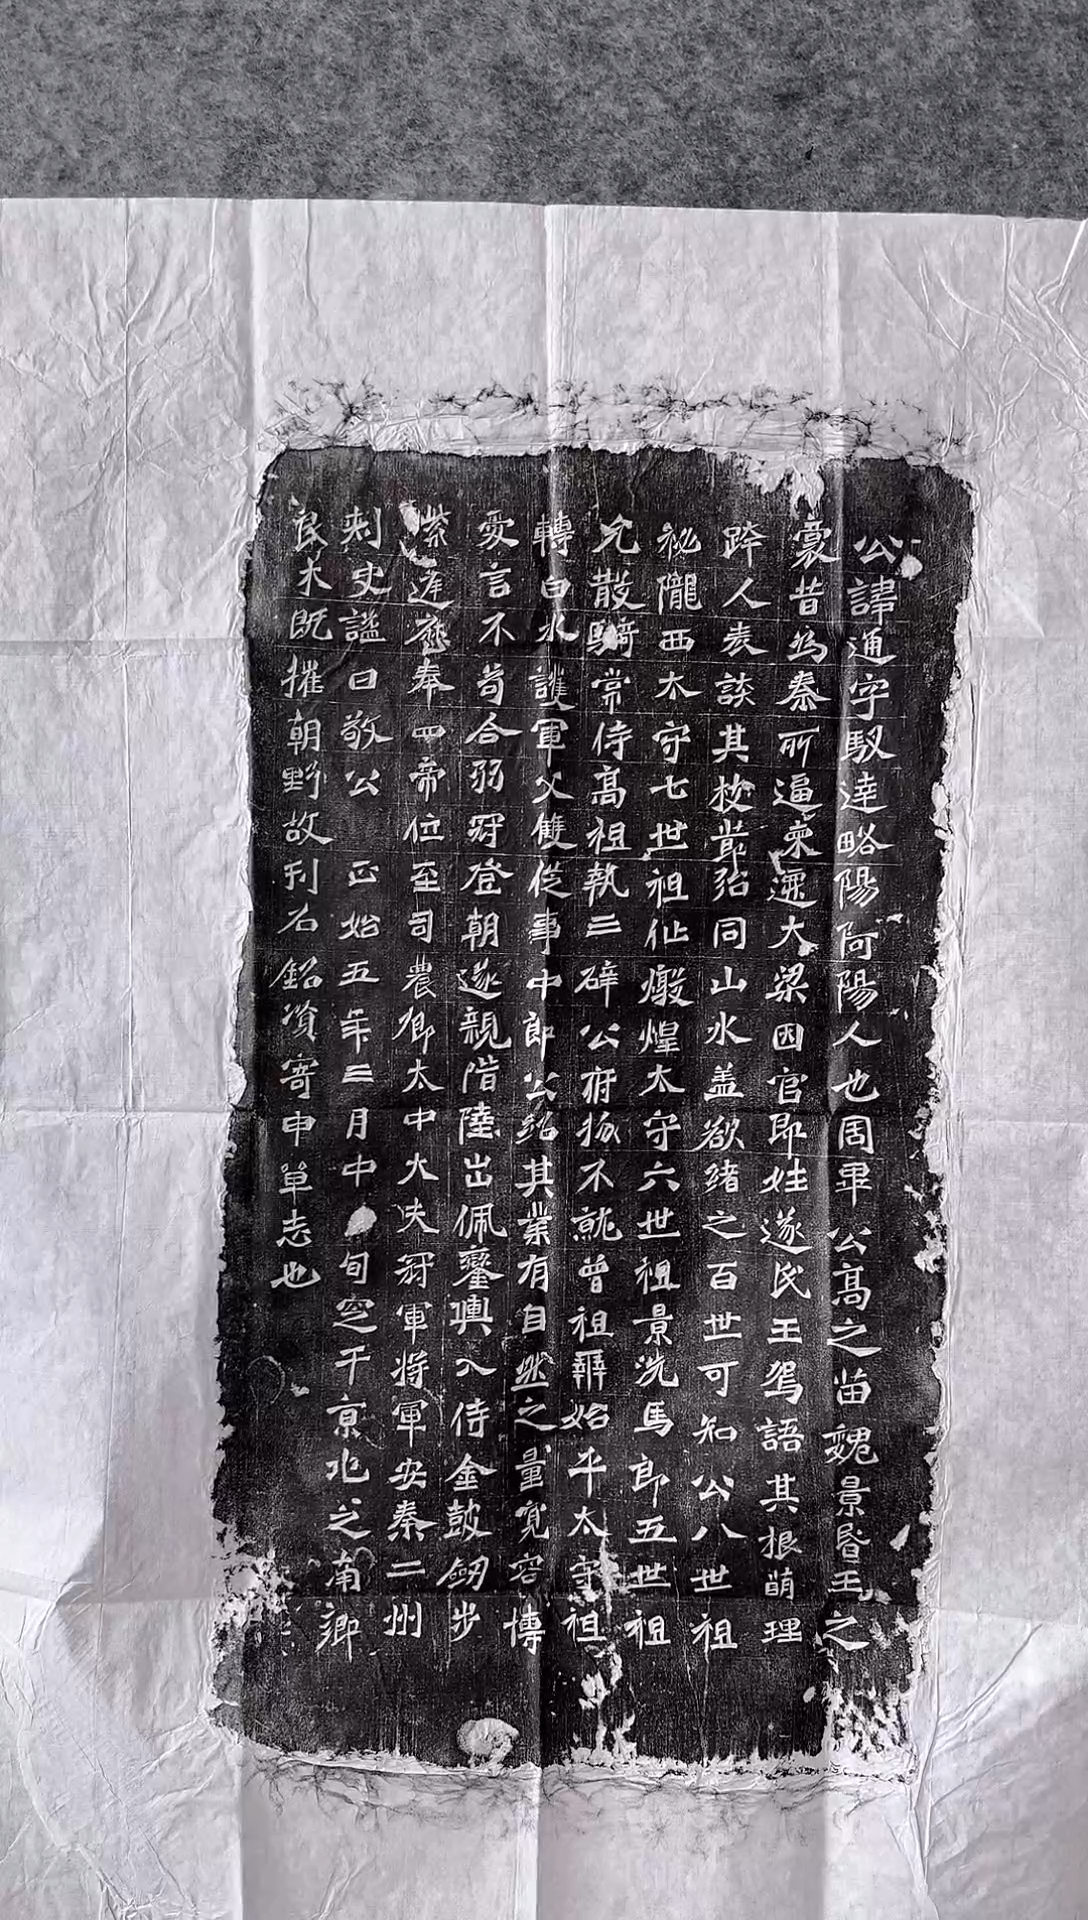 公諱通字馭達略陽阿陽人也周畢公髙之苗魏景昏王之
豪昔為秦所逼來遷大梁因官即姓遂氏王焉語其根萌理
跨人表談其校葉殆同山水盖欲緒之百世可知公八世祖
祕隴西太守七世祖仙燉煌太守六世祖景洗馬郎五世祖
允散騎常侍髙祖執三辟公府掾不就曾祖辯始平太守祖
轉白水護軍父雙從事中郎公紹其業有自然之量寬容博
愛言不苟合弱冠登朝遂親階陸出佩鑾輿入侍金鼓劒步
紫遲歷奉四帝位至司農卿太中大夫冠軍將軍安秦二州
刾史謚曰敬公 正始五年三月中旬窆于京兆之南鄉
良木既摧朝野故刊石銘濱寄申單志也